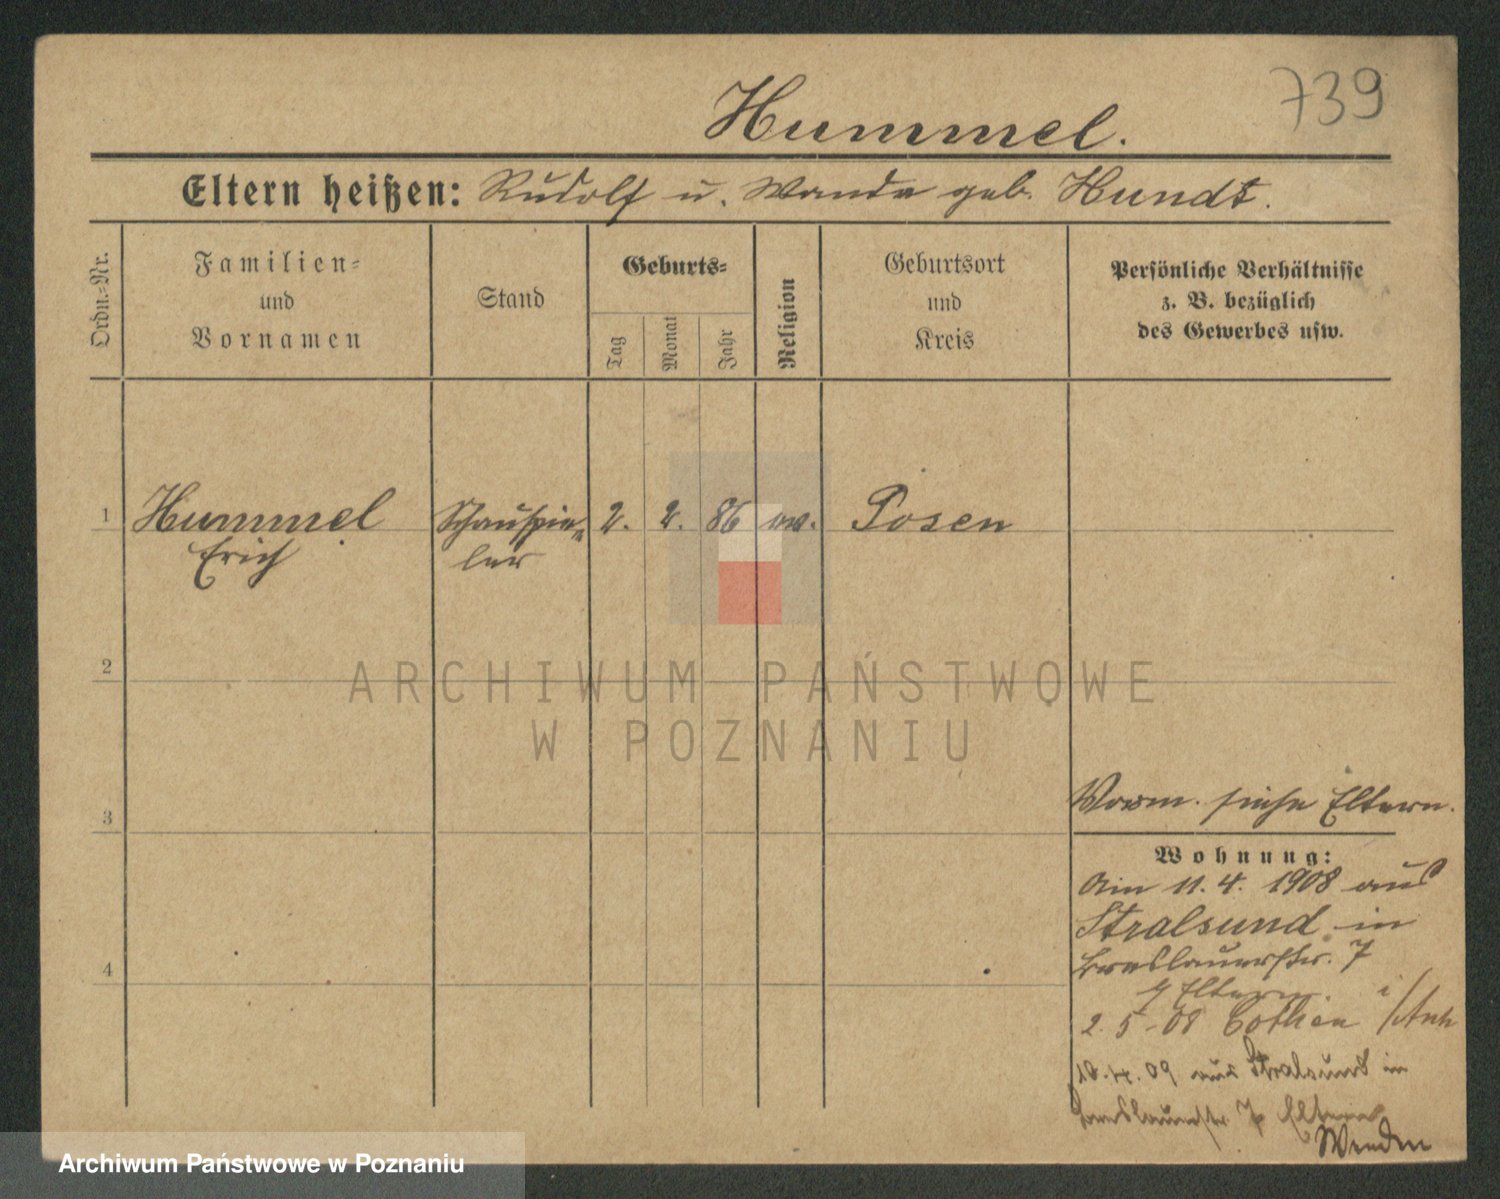 739
Hummel.
Eltern heißen: Rudolf u. Wanda geb. Hundt.
Ordn.-Nr.
Familien-
und
Vornamen
Stand
Geburts-
Tag
Monat
Jahr
Religion
Geburtsort
und
Kreis
Persönliche Verhältnisse
z. B. bezüglich
des Gewerbes usw.
1 Hummel Schauspie- 2. 2. 86 ev. Posen
Erich ler
2
ARCHIWUM PAŃSTWOWE
W POZNANIU
Vorm. siehe Eltern.
3
Wohnung:
Am 11. 4. 1908 aus
Stralsund in
Breslauerstr. 7
4
Eltern
2. 5 - 08 Cöthen i/Anh
10. 4. 09 aus Stralsund in
Breslauerstr 7 Eltern
Archiwum Państwowe w Poznaniu